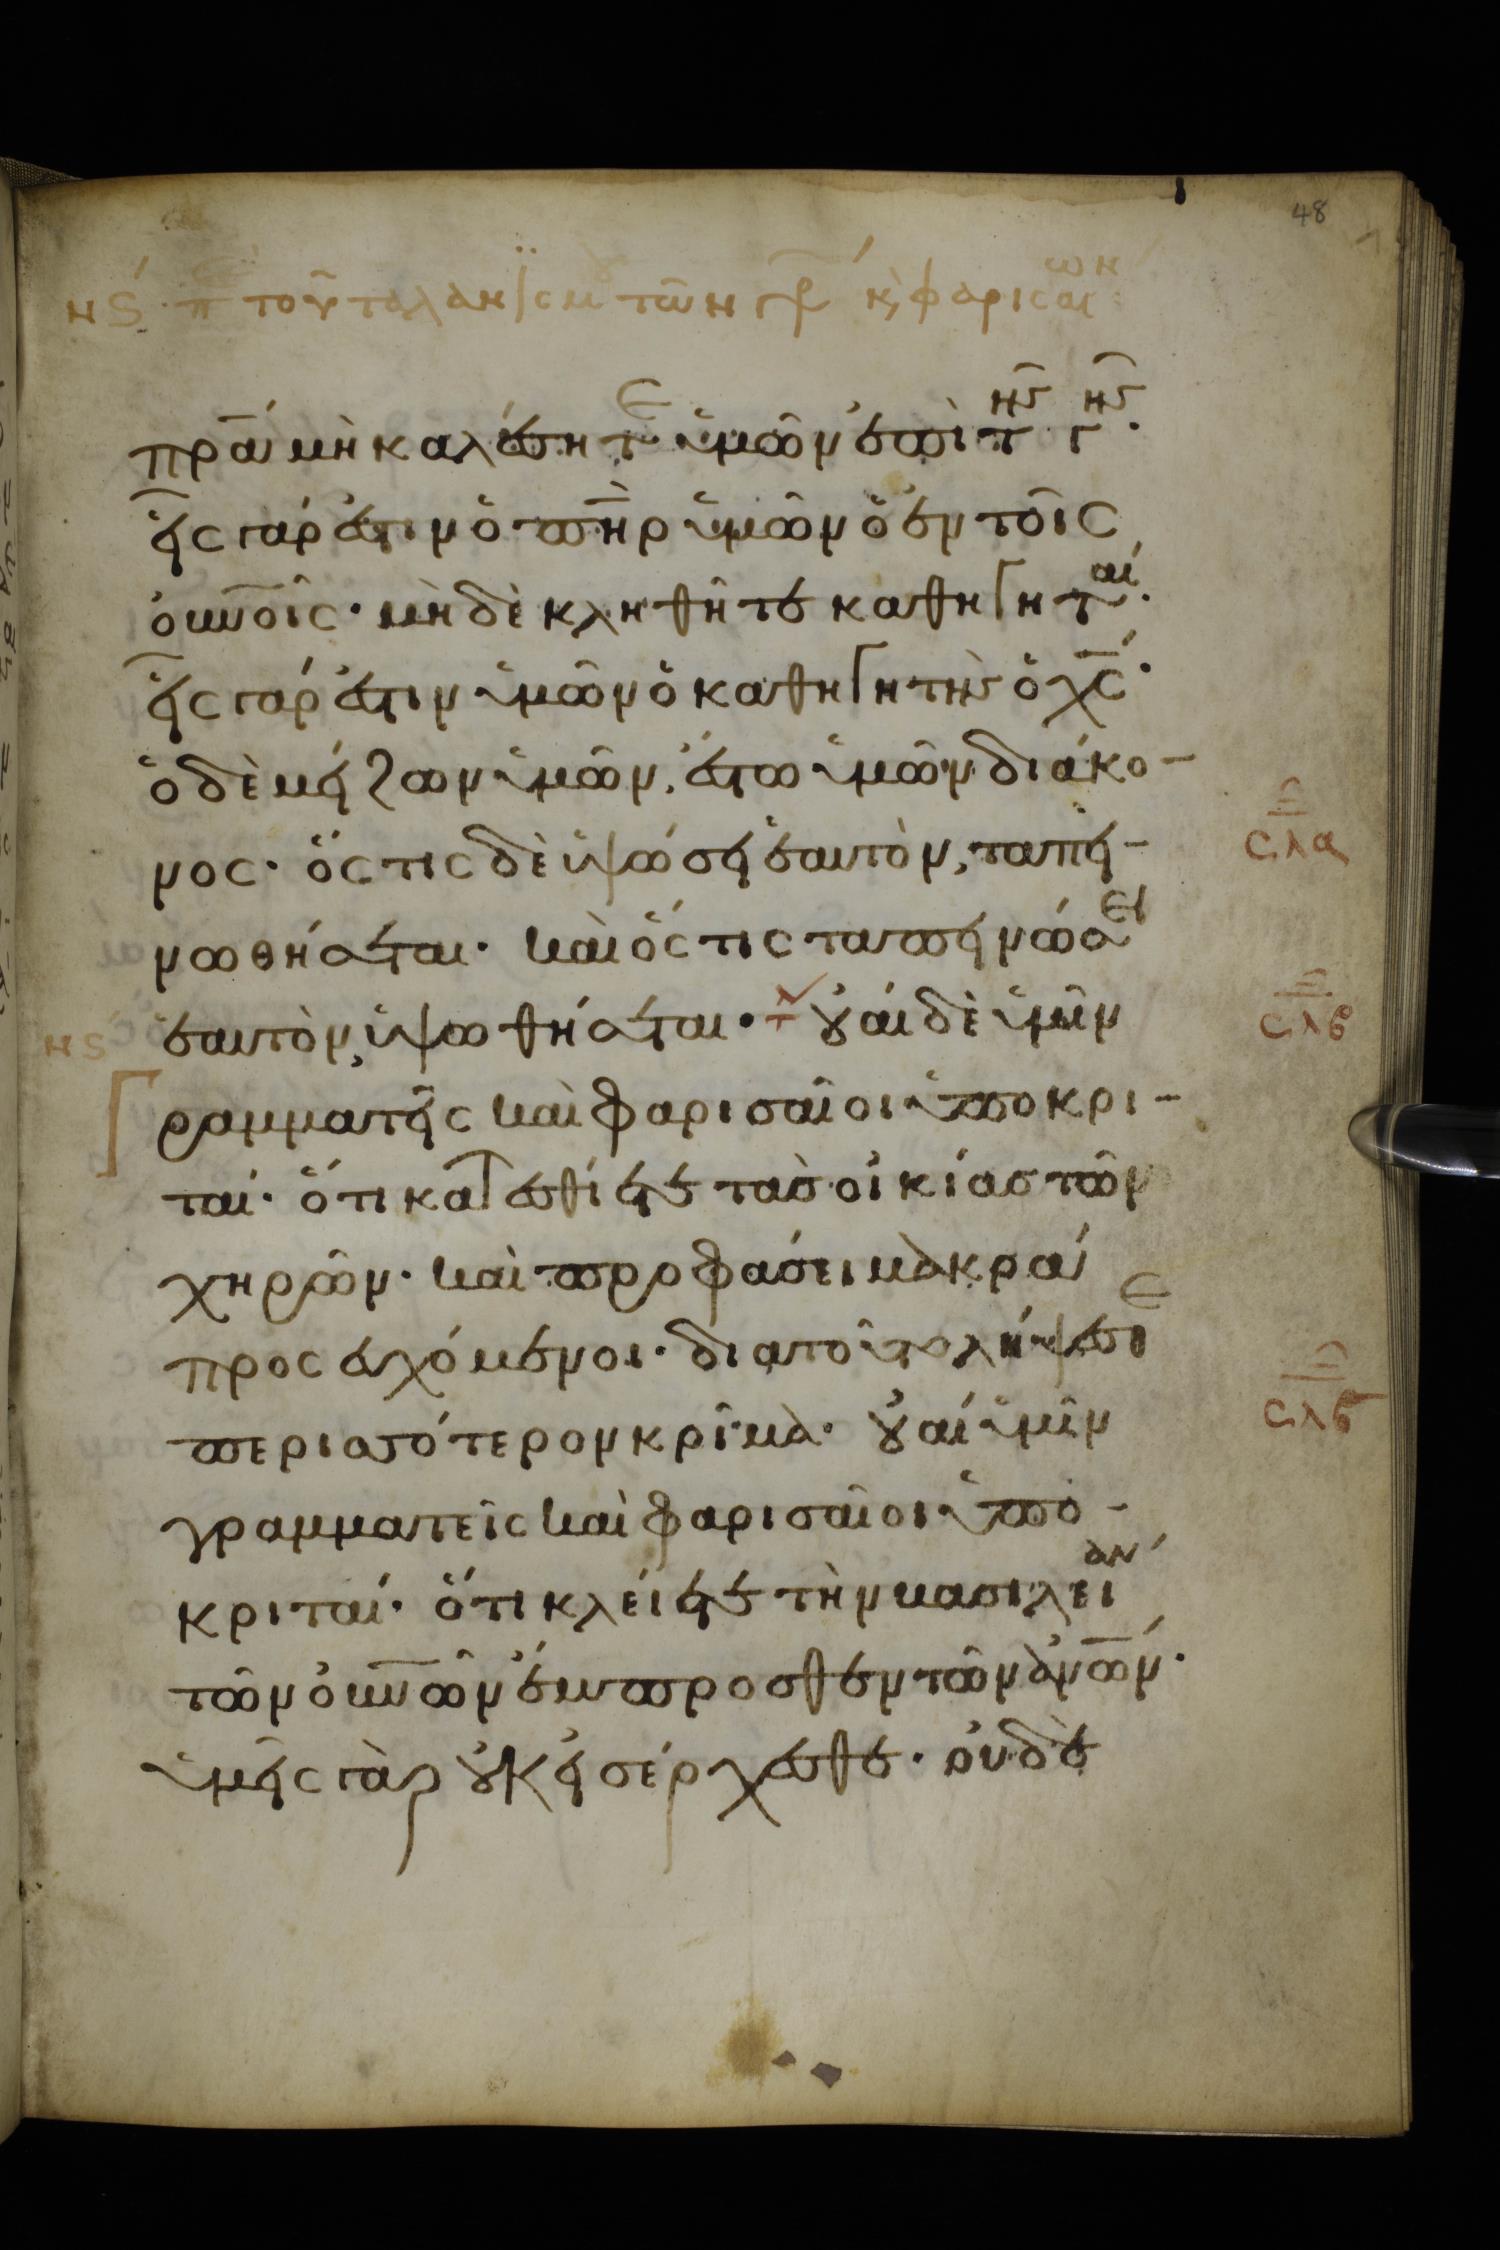 48
νϛ π̅ε̅ τοῦ ταλανισμοῦ τῶν γρ κ̀ φαρισαίων
πρ̅α̅ μὴ καλέσητε ὑμῶν ἐπὶ τῆς γῆς·
εἷς γάρ ἐστιν ὁ π̅η̅ρ ὑμῶν ὁ ἐν τοῖς
ο̅υ̅ν̅οῖς· μὴ δὲ κληθῆτε καθηγηταί·
εἷς γάρ ἐστιν ὑμῶν ὁ καθηγητὴς ὁ χ̅ς̅·
ὁ δὲ μείζων ὑμῶν, ἔστω ὑμῶν διάκο-
νος· ὅς τις δὲ ὑψώσει ἑαυτὸν, ταπει-
νωθήσεται· καὶ ὅς τις ταπεινώσει
ἑαυτὸν, ὑψωθήσεται· οὐαί δὲ ὑμῖν
γραμματεῖς καὶ φαρισαῖοι ὑποκρι-
ταί· ὅτι κατεσθίετε τὰς οἰκίας τῶν
χηρῶν· καὶ προφάσει μακρὰ
προσευχόμενοι· διατοῦτο λήψεσθε
περισσότερον κρῖμα· οὐαί ὑμῖν
γραμματεῖς καὶ φαρισαῖοι ὑπο-
κριταί· ὅτι κλείετε τὴν βασιλείαν
τῶν ο̅υ̅ν̅ῶν ἔμπροσθεν τῶν α̅ν̅ω̅ν·
ὑμεῖς γὰρ οὐκ εἰσέρχεσθε· οὐδὲ
σλα
σλβ
νϛ
σλς